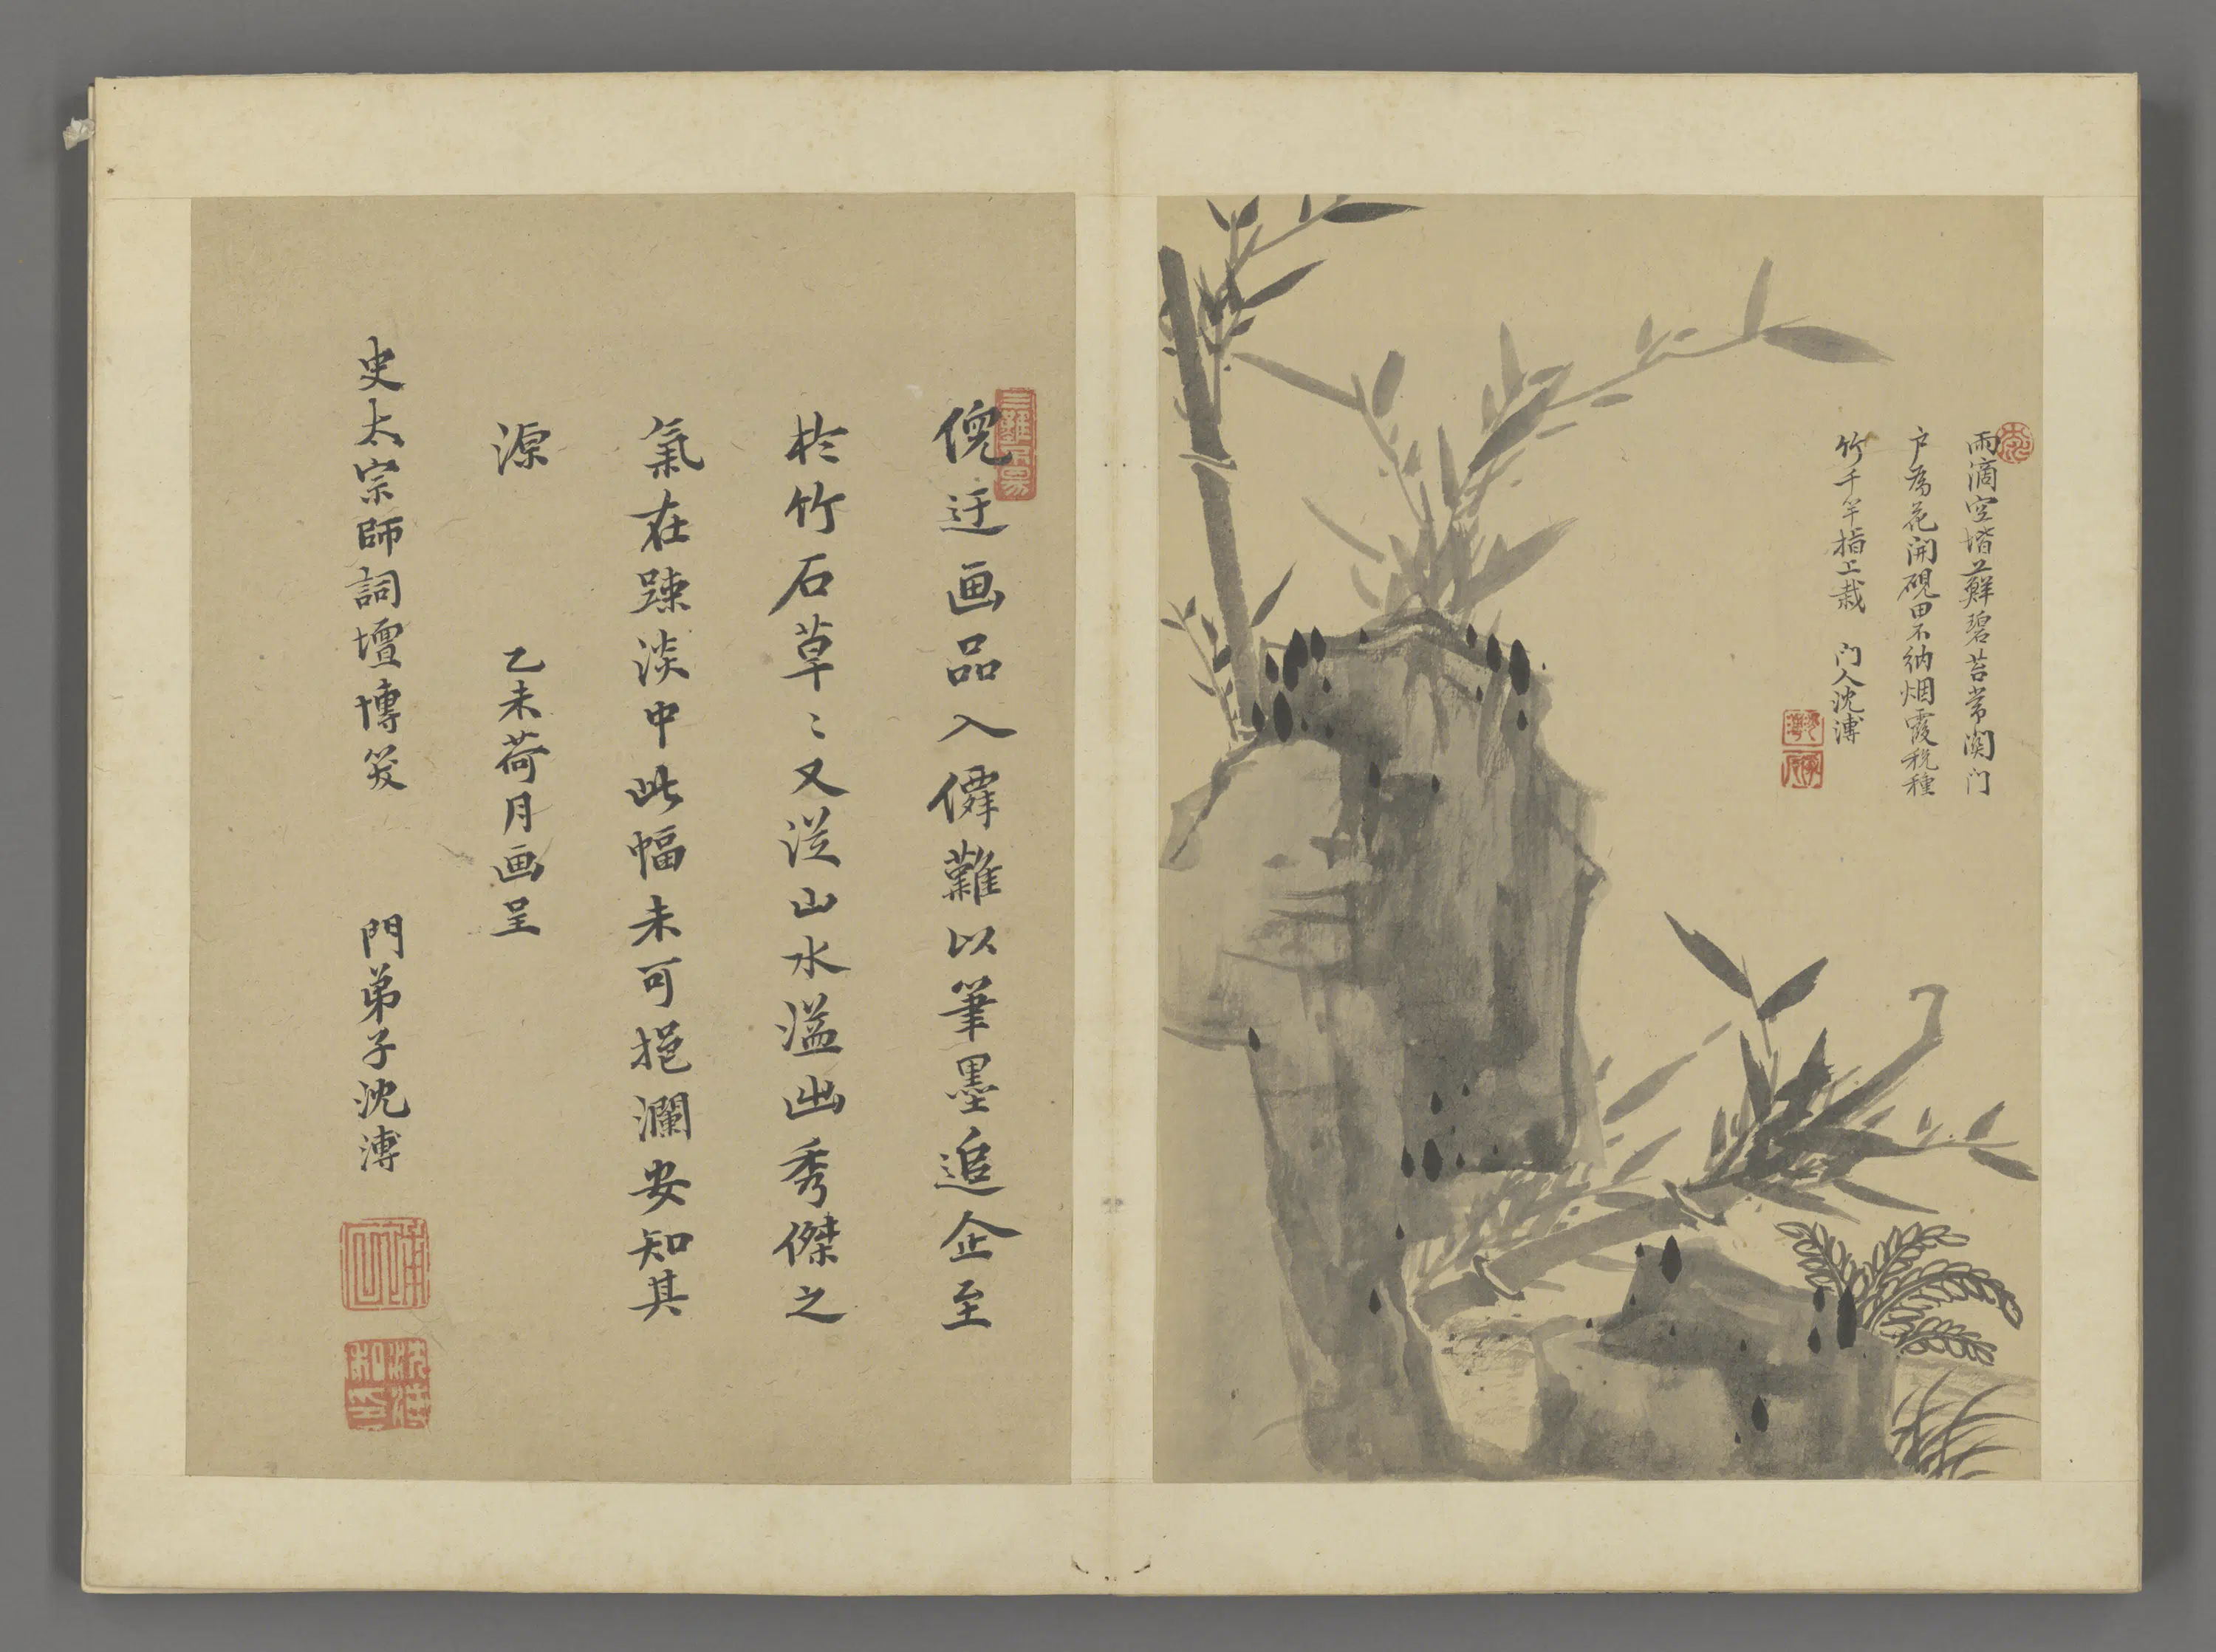 雨滴空堦蘚碧苔常関门
户為花開硯田不納烟霞税種
竹千竿指上栽 门人沈溥
倪迂画品入僊難以筆墨追企至
於竹石草〻又從山水溢出秀傑之
氣在踈淡中此幅未可挹瀾安知其
源 乙未荷月画呈
史太宗師詞壇博笑 門弟子沈溥